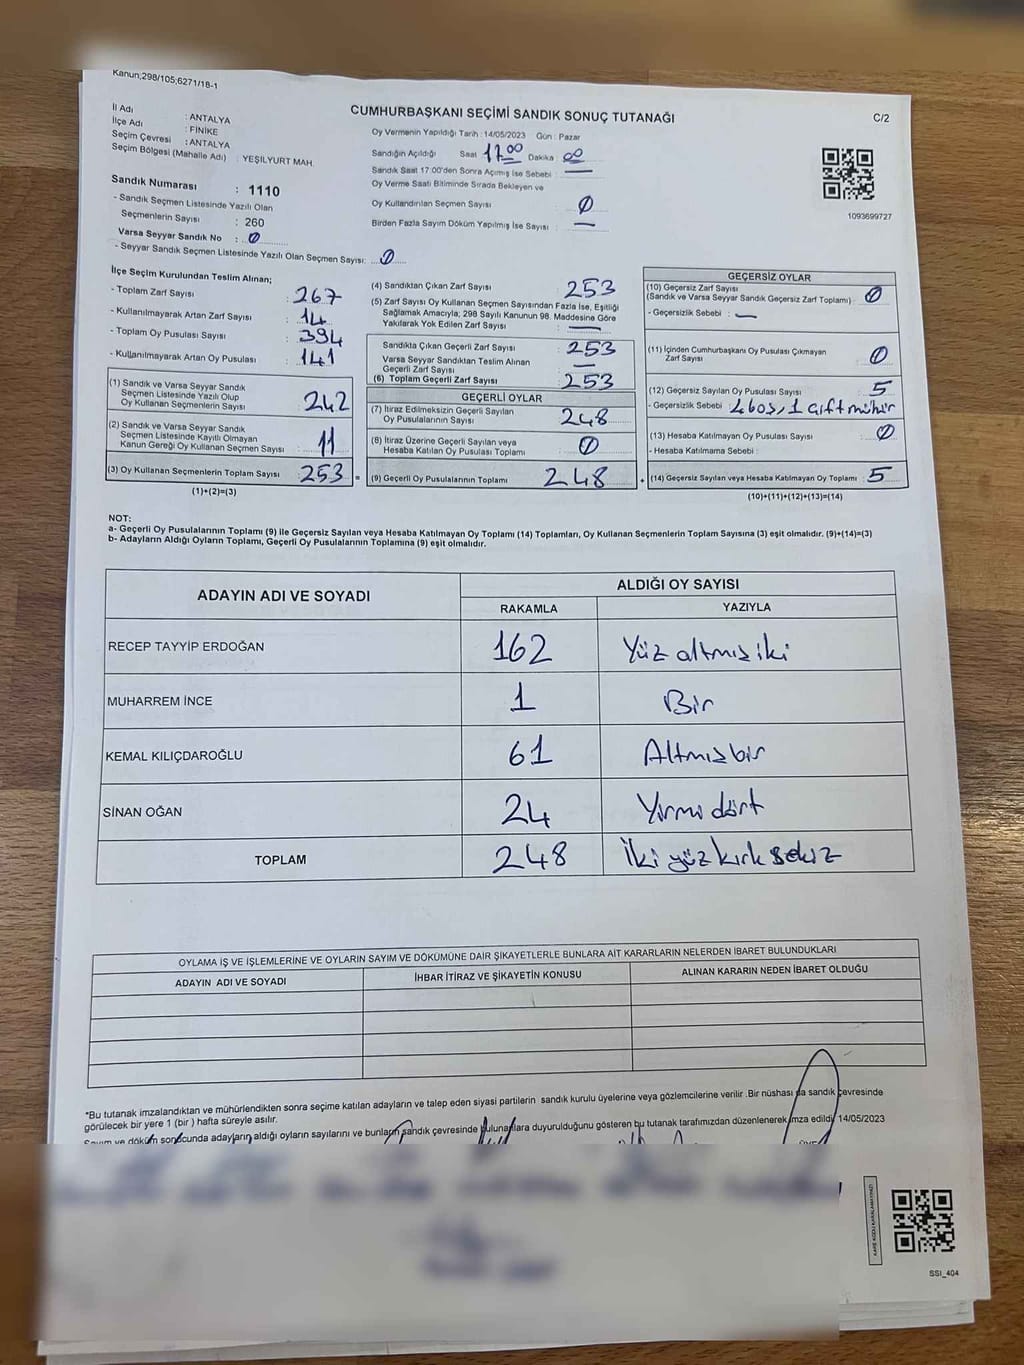 Kanun;298/105;6271/18-1
CUMHURBAŞKANI SEÇİMİ SANDIK SONUÇ TUTANAĞI
C/2
İl Adı : ANTALYA
İlçe Adı : FİNİKE
Seçim Çevresi : ANTALYA
Seçim Bölgesi (Mahalle Adı) : YEŞİLYURT MAH.
Oy Vermenin Yapıldığı Tarih : 14/05/2023 Gün : Pazar
Sandığın Açıldığı Saat 17 00 Dakika : 00
Sandık Saat 17:00'den Sonra Açımış İse Sebebi : —
Oy Verme Saati Bitiminde Sırada Bekleyen ve
Oy Kullandırılan Seçmen Sayısı : 0
Birden Fazla Sayım Döküm Yapılmış İse Sayısı : —
1093699727
Sandık Numarası : 1110
- Sandık Seçmen Listesinde Yazılı Olan
Seçmenlerin Sayısı : 260
Varsa Seyyar Sandık No : 0
- Seyyar Sandık Seçmen Listesinde Yazılı Olan Seçmen Sayısı: 0
İlçe Seçim Kurulundan Teslim Alınan;
- Toplam Zarf Sayısı : 267
- Kullanılmayarak Artan Zarf Sayısı : 14
- Toplam Oy Pusulası Sayısı : 394
- Kullanılmayarak Artan Oy Pusulası : 141
(1) Sandık ve Varsa Seyyar Sandık
Seçmen Listesinde Yazılı Olup
Oy Kullanan Seçmenlerin Sayısı : 242
(2) Sandık ve Varsa Seyyar Sandık
Seçmen Listesinde Kayıtlı Olmayan
Kanun Gereği Oy Kullanan Seçmen Sayısı : 11
(3) Oy Kullanan Seçmenlerin Toplam Sayısı : 253 =
(1)+(2)=(3)
(4) Sandıktan Çıkan Zarf Sayısı : 253
(5) Zarf Sayısı Oy Kullanan Seçmen Sayısından Fazla İse, Eşitliği
Sağlamak Amacıyla; 298 Sayılı Kanunun 98. Maddesine Göre
Yakılarak Yok Edilen Zarf Sayısı : —
Sandıkta Çıkan Geçerli Zarf Sayısı : 253
Varsa Seyyar Sandıktan Teslim Alınan
Geçerli Zarf Sayısı : —
(6) Toplam Geçerli Zarf Sayısı : 253
GEÇERLİ OYLAR
(7) İtiraz Edilmeksizin Geçerli Sayılan
Oy Pusulalarının Sayısı : 248
(8) İtiraz Üzerine Geçerli Sayılan veya
Hesaba Katılan Oy Pusulası Toplamı : 0
(9) Geçerli Oy Pusulalarının Toplamı : 248 +
GEÇERSİZ OYLAR
(10) Geçersiz Zarf Sayısı
(Sandık ve Varsa Seyyar Sandık Geçersiz Zarf Toplamı) : 0
- Geçersizlik Sebebi : —
(11) İçinden Cumhurbaşkanı Oy Pusulası Çıkmayan
Zarf Sayısı : 0
(12) Geçersiz Sayılan Oy Pusulası Sayısı : 5
- Geçersizlik Sebebi : 4 boş, 1 çift mühür
(13) Hesaba Katılmayan Oy Pusulası Sayısı : 0
- Hesaba Katılmama Sebebi :
(14) Geçersiz Sayılan veya Hesaba Katılmayan Oy Toplamı : 5
(10)+(11)+(12)+(13)=(14)
NOT:
a- Geçerli Oy Pusulalarının Toplamı (9) ile Geçersiz Sayılan veya Hesaba Katılmayan Oy Toplamı (14) Toplamları, Oy Kullanan Seçmenlerin Toplam Sayısına (3) eşit olmalıdır. (9)+(14)=(3)
b- Adayların Aldığı Oyların Toplamı, Geçerli Oy Pusulalarının Toplamına (9) eşit olmalıdır.
ADAYIN ADI VE SOYADI
ALDIĞI OY SAYISI
RAKAMLA YAZIYLA
RECEP TAYYİP ERDOĞAN 162 Yüz altmış iki
MUHARREM İNCE 1 Bir
KEMAL KILIÇDAROĞLU 61 Altmış bir
SİNAN OĞAN 24 Yirmi dört
TOPLAM 248 İki yüz kırk sekiz
OYLAMA İŞ VE İŞLEMLERİNE VE OYLARIN SAYIM VE DÖKÜMÜNE DAİR ŞİKAYETLERLE BUNLARA AİT KARARLARIN NELERDEN İBARET BULUNDUKLARI
ADAYIN ADI VE SOYADI İHBAR İTİRAZ VE ŞİKAYETİN KONUSU ALINAN KARARIN NEDEN İBARET OLDUĞU
*Bu tutanak imzalandıktan ve mühürlendikten sonra seçime katılan adayların ve talep eden siyasi partilerin sandık kurulu üyelerine veya gözlemcilerine verilir .Bir nüshası da sandık çevresinde
görülecek bir yere 1 (bir ) hafta süreyle asılır.
Sayım ve döküm sonucunda adayların aldığı oyların sayılarını ve bunların sandık çevresinde bulunanlara duyurulduğunu gösteren bu tutanak tarafımızdan düzenlenerek imza edildi. 14/05/2023
SSI_404